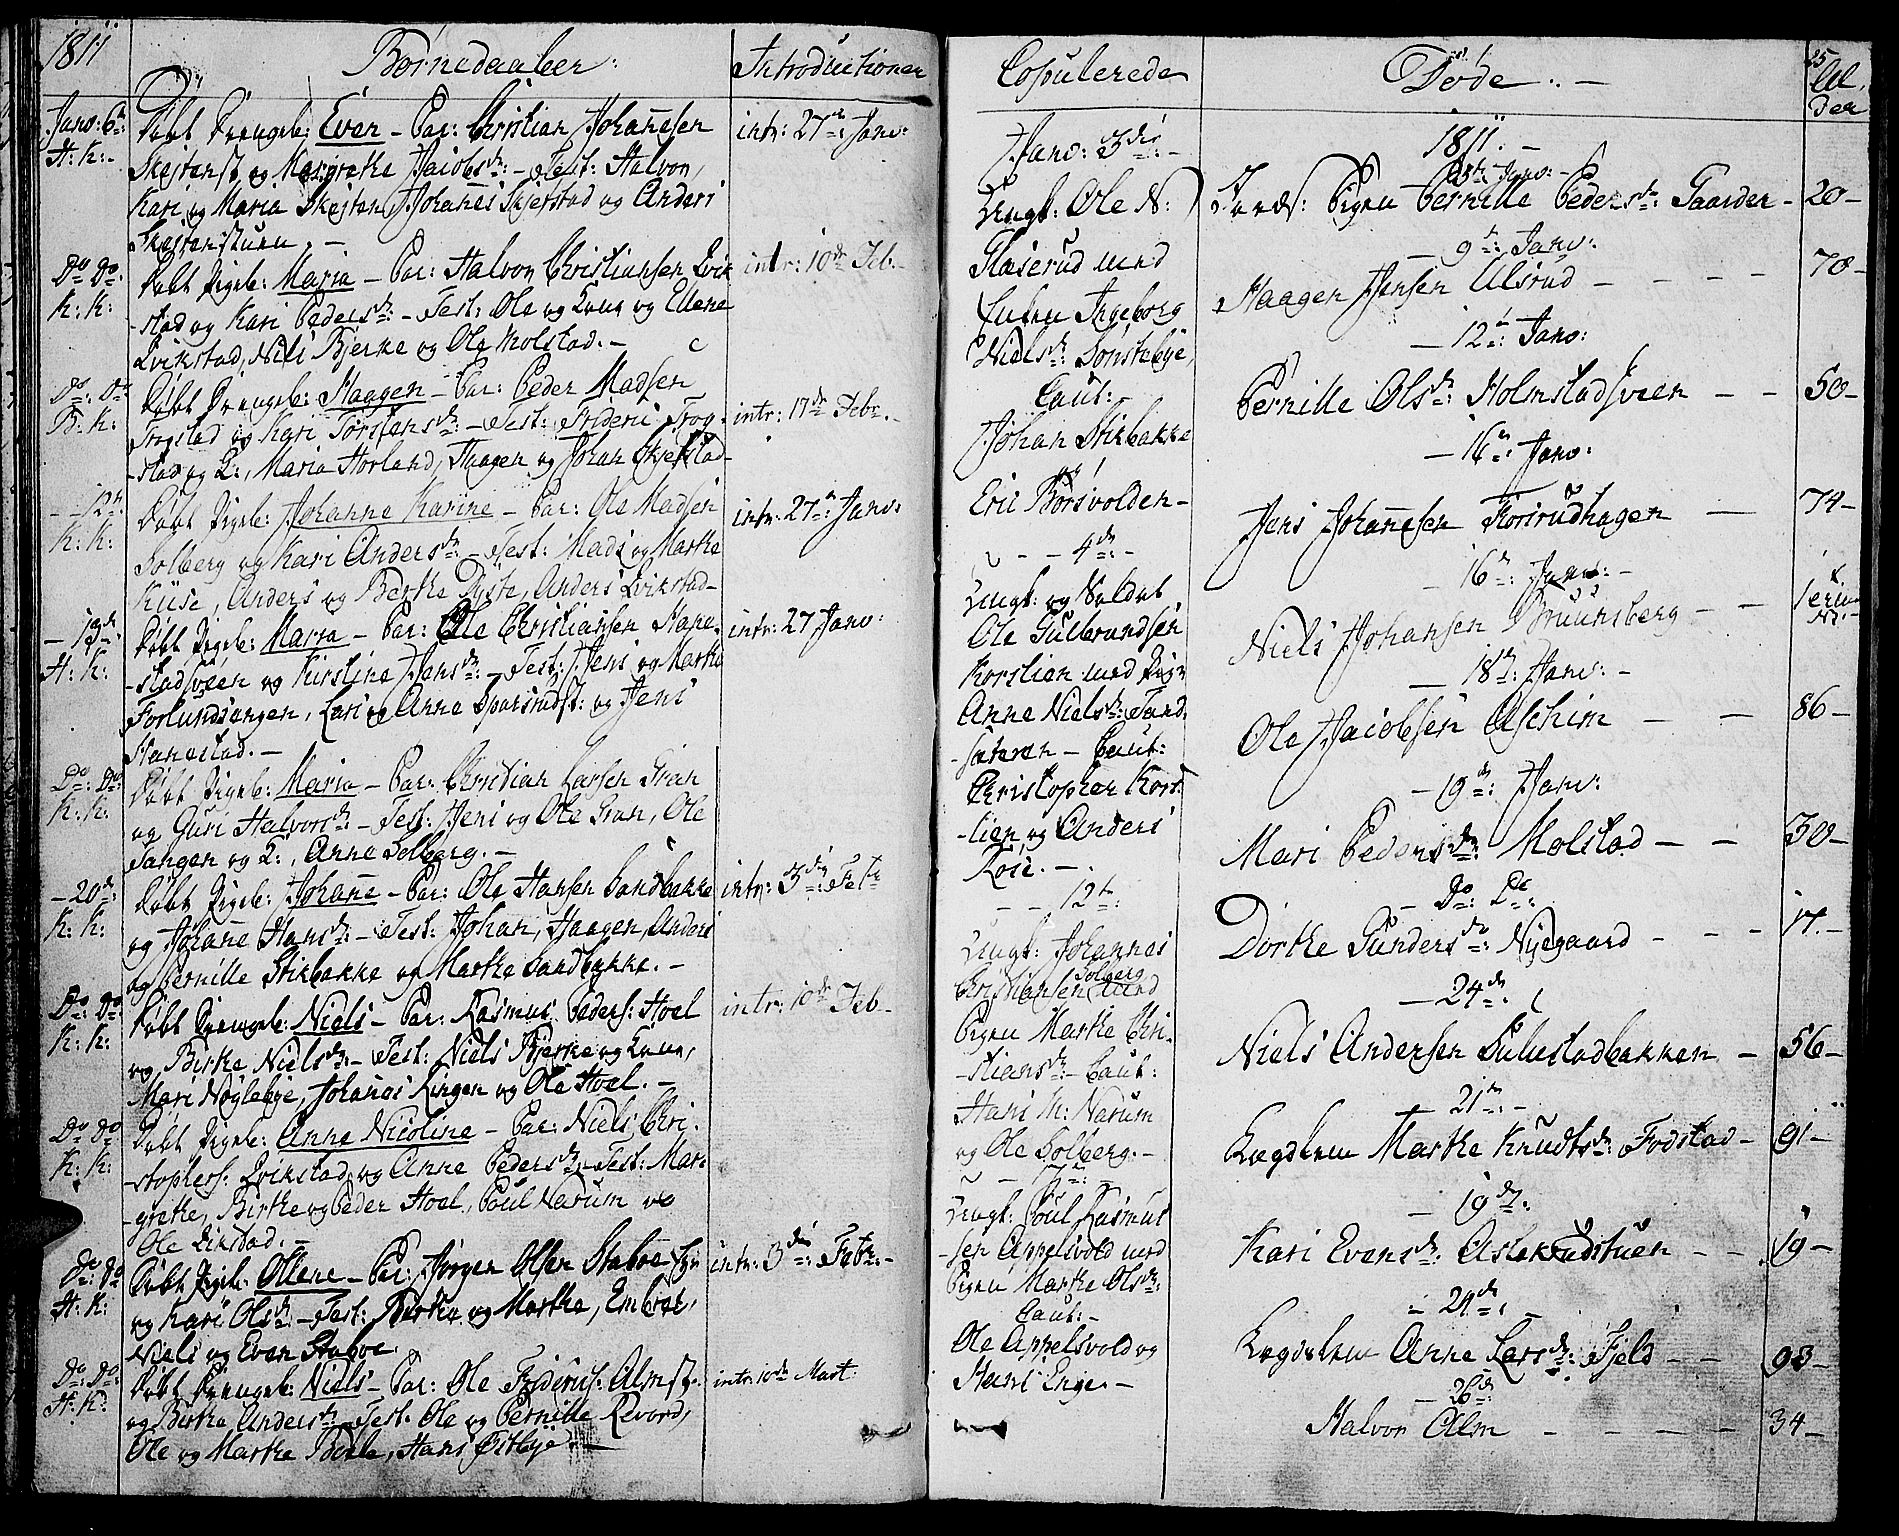 1811
Børnedaaber:
Introductioner
Janv: 6te:
H: K:
Døbt Drengeb: Even – Par: Christian Johannesen
Skejsenst og Margrethe Jacobsdr: – Test: Halvor,
Kari og Maria Skejsen, Johannes Skjefstad og Anders
Skejsenstuen. –
intr: 27de: Janv:
Do: Do:
K: K:
Døbt Pigeb: Maria – Par: Halvor Christiansen Qvik
-stad og Kari Pedersdr: – Test: Ole og Kone og Ellene
Qvikstad, Niels Bjerke og Ole Molstad. –
intr: 10de Feb. –
Do: Do:
B: K:
Døbt Drengeb: Haagen – Par: Peder Madsen
Trogstad og Kari Torstensdr: – Test: Frideric Trog-
stad og K:, Maria Horland, Haagen og Johan Skjefstad –
intr: 17de Febr. –
– 12te:
K: K:
Døbt Pigeb: Johanne Karine – Par: Ole Madsen
Solberg og Kari Andersdr: – Test: Mads og Marthe
Kiise, Anders og Berthe Dyste, Anders Qvikstad –
intr: 27de: Janv:
– 13de:
H: K:
Døbt Pigeb: Maria – Par: Ole Christiansen Hane-
-stadsveen og Kirstine Jensdr: – Test: Jens og Marthe
Forlundsengen, Lars og Anne Sparsrudst: og Jens
Hanestad. –
intr: 27 Janv:
Do: Do:
K: K:
Døbt Pigeb: Maria – Par: Christian Larsen Gran
og Guri Halvorsdr: – Test: Jens og Ole Gran, Ole
Tangen og K:, Anne Solberg. –
– 20de:
K: K:
Døbt Pigeb: Johanne – Par: Ole Hansen Sandbakke
og Johanne Hansdr: – Test: Johan, Haagen, Anders
og Pernille Stikbakke og Marthe Sandbakke. –
intr: 3die: Febr
Do: Do:
K: K:
Døbt Drengeb: Niels – Par: Rasmus Peders: Hoel
og Birthe Nielsdr: – Test: Niels Bjerke og Kone,
Mari Nøglebye, Johanes Ringen og Ole Hoel. –
intr: 10de Feb –
Do Do
K: K:
Døbt Pigeb: Anne Nicoline – Par: Niels Chri-
stophers: Qvikstad og Anne Pedersdr: – Test: Mar-
-grethe, Birthe og Peder Hoel, Poul Narum og
Ole Qvikstad. –
Do: Do
H: K:
Døbt Pigeb: Ollene – Par: Jørgen Olsen Staboe
og Kari Olsdr: – Test: Berthe og Marthe, Embret,
Niels og Even Staboe.
intr: 3die: Febr: –
Do: Do:
H: K:
Døbt Drengeb: Niels – Par: Ole Friderics: Alm
og Birthe Andersdr: – Test: Ole og Pernille Revord,
Ole og Marthe, Hans Østbye –
intr: 10de Mart:
Copulerede
Janv: 3die: –
Ungk: Ole N:
Glæserud med
Enken Ingeborg
Nielsdr: Sønstebye,
Caut:
Johan Stikbakke
Eric Børsvolden –
– – 4de: –
Ungk: og Soldat
Ole Gulbrandsen
Korslien med Pig:
Anne Nielsdr: Sand-
-sæteren – Caut:
Christopher Kors-
-lien og Anders
Røise. –
– – 12te:
Ungk: Johannes
Christiansen Solberg med
Pigen Marthe Chri-
-stiansdr: – Caut:
Hans M: Narum
og Ole Solberg. –
– 17de: –
Ungk: Poul Rasmus-
-sen Appelsvold med
Pigen Marthe Olsdr:
Caut: –
Ole Appelsvold og
Hans Enge. –
Døde. –
25
Al-
der
1811. –
Pigen Pernille Pedersdr: Gaarder – 20 –
– 9de: Janv:
Haagen Jensen Ulsrud – – – – 70 –
– 12te: Janv:
Pernille Olsdr: Holmstadsveen – – 50 –
– 16de: Janv:
Jens Johannesen Korsrudhagen – 74 –
– 16de: Janv: –
Niels Johansen Bruunsberg – – 1
– 18de: Janv: –
Ole Jacobsen Aschim – – 86 –
– 19de: Janv:
Mari Pedersdr: Molstad – – 30 –
– Do: Do:
Dorthe Gundersdr: Nyegaard – – – 17. –
– 24de:
Niels Andersen Sulustadbakken – 56 –
– 21de: –
Lægdslem Marthe Knudtsdr: Fodstad – 91 –
– 19de:
Kari Evensdr: Aslakrudstuen – – 19 –
– 24de:
Lægdslem Anne Larsdr: Fjeld – – 93 –
– 26de:
Halvor Alm – – – – 34 –